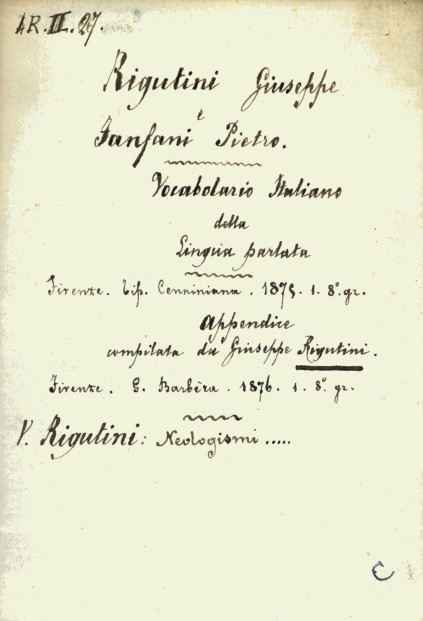 AR. II. 27.
Rigutini Giuseppe
e
Fanfani Pietro.
Vocabolario Italiano
della
Lingua parlata
Firenze. Tip. Cenniniana. 1875. 1. 8º. gr.
Appendice
compilata da Giuseppe Rigutini.
Firenze. G. Barbèra. 1876. 1. 8º. gr.
V. Rigutini: Neologismi .....
C